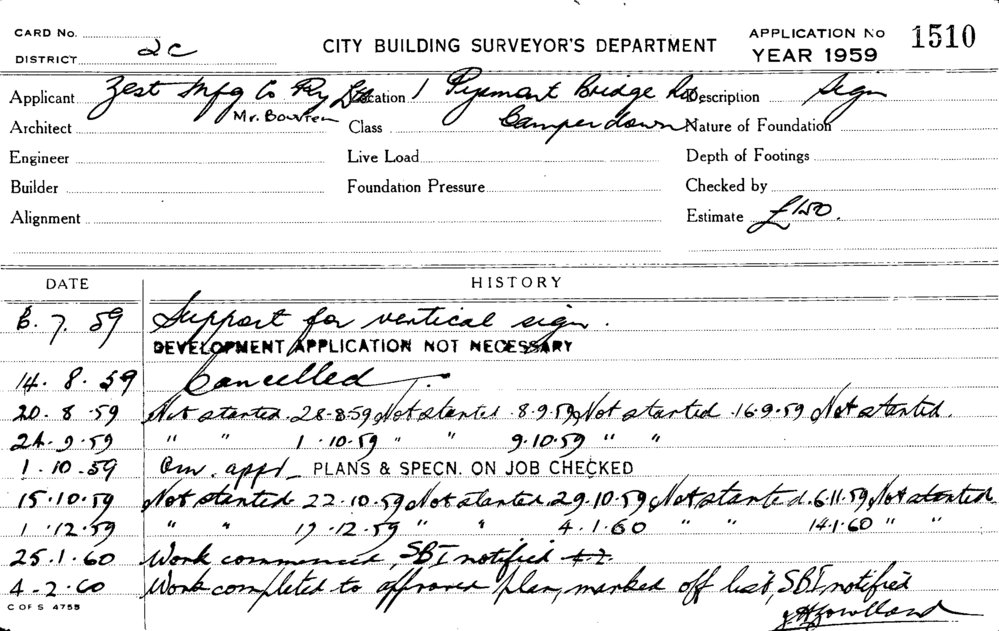 CARD No.
DISTRICT 2C
CITY BUILDING SURVEYOR'S DEPARTMENT
APPLICATION No 1510
YEAR 1959
Applicant Zest Mfg Co Pty Ltd Location 1 Pyrmont Bridge Rd Description Sign
Mr. Bowren
Architect Class Camperdown Nature of Foundation
Engineer Live Load Depth of Footings
Builder Foundation Pressure Checked by
Alignment Estimate £150.
DATE HISTORY
6. 7. 59 Support for vertical sign.
DEVELOPMENT APPLICATION NOT NECESSARY
14. 8. 59 Cancelled
20. 8. 59 Not started 28-8-59 Not started 8.9.59 Not started 16.9.59 Not started.
24. 9. 59 " " 1. 10. 59 " " 9. 10. 59 " "
1. 10. 59 appd PLANS & SPECN. ON JOB CHECKED
15. 10. 59 Not started 22. 10. 59 Not started 29. 10. 59 Not started. 6. 11. 59 Not started.
1. 12. 59 " " 17. 12. 59 " " 4. 1. 60 " " 14. 1. 60 " "
25. 1. 60 Work commenced, SBI notified
4-2-60 Work completed to approved plan, marked off list, SBI notified
C OF S 4755